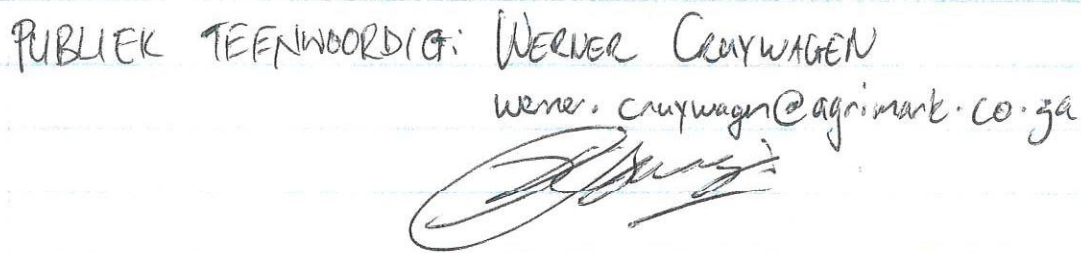 PUBLIEK TEENWOORDIG: WERNER CRUYWAGEN
werner.cruywagen@agrimark.co.za